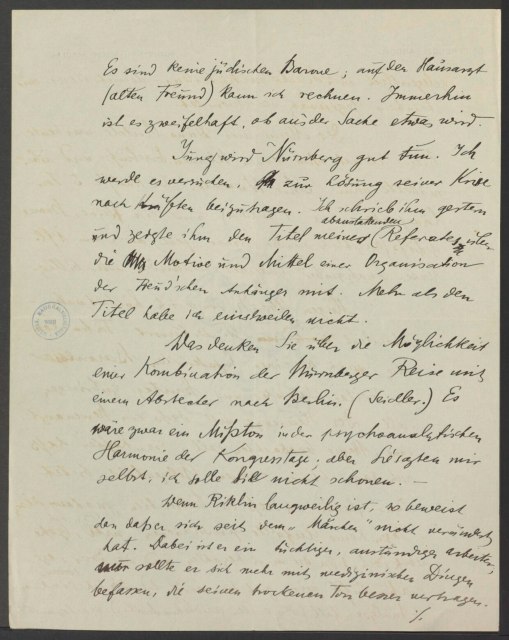 Es sind keine jüdischen Barone; auf den Hausarzt
(alten Freund) kann ich rechnen. Immerhin
ist es zweifelhaft, ob aus der Sache etwas wird.
Jung wird Nürnberg gut tun. Ich
werde es versuchen, zur Lösung seiner Krise
nach Kräften beizutragen. Ich schrieb ihm gestern
und zeigte ihm den Titel meines abzustattenden Referates über
die Motive und Mittel einer Organisation
der Freud'schen Anhänger mit. Mehr als den
Titel habe ich einstweilen nicht.
Was denken Sie über die Möglichkeit
einer Kombination der Nürnberger Reise mit
einem Abstecher nach Berlin. (Seidler.) Es
wäre zwar ein Mißton in der psychoanalytischen
Harmonie der Kongresstage, aber Sie sagten mir
selbst, ich solle Sie nicht schonen. —
Wenn Riklin langweilig ist, so beweist
das daß er sich seit dem „Märchen" nicht verändert
hat. Dabei ist er ein tüchtiger, anständiger Arbeiter,
nur sollte er sich mehr mit medizinischen Dingen
befassen, die seinen trockenen Ton besser vertragen.
./.